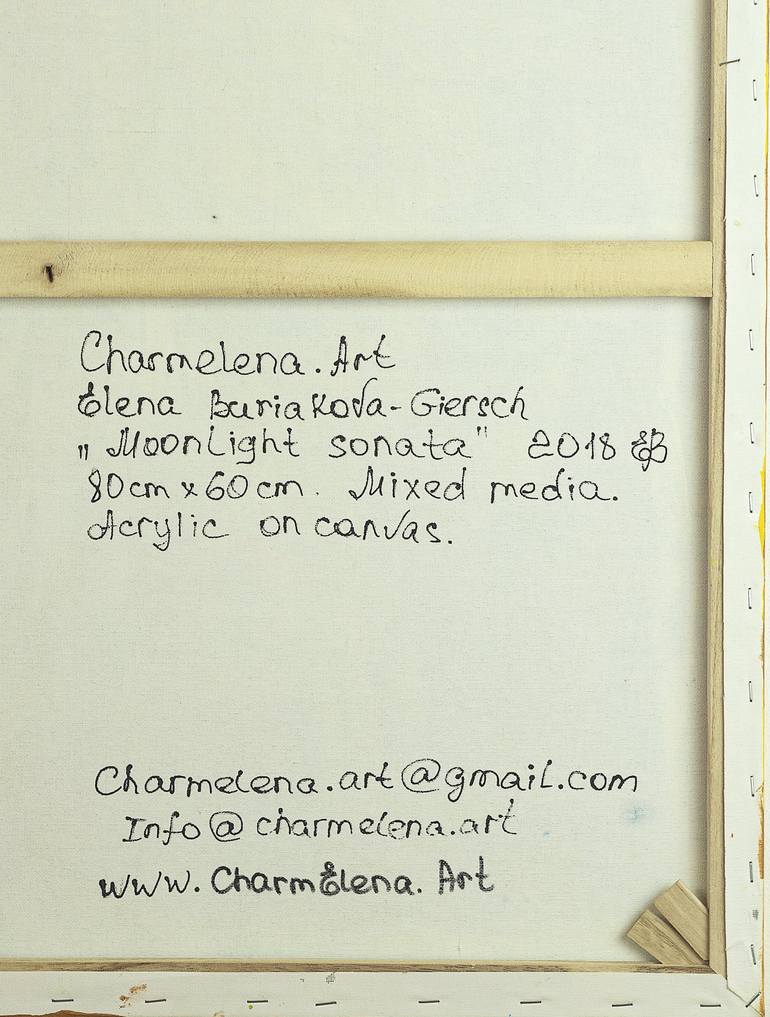 Charmelena.Art
Elena Buriakova-Giersch
„Moonlight sonata" 2018 EB
80cm x 60cm. Mixed media.
Acrylic on canvas.
Charmelena.art@gmail.com
Info@charmelena.art
www.CharmElena.Art